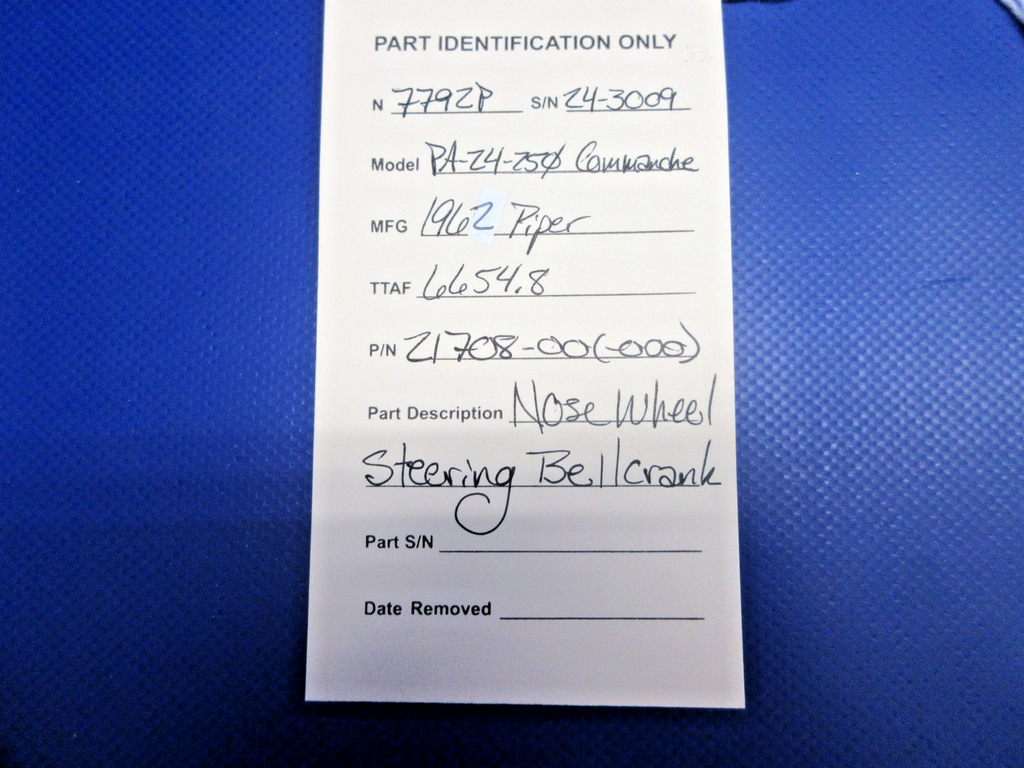 PART IDENTIFICATION ONLY
N 7792P S/N 24-3009
Model PA-24-250 Commanche
MFG 1962 Piper
TTAF 6654.8
P/N 21708-00(-000)
Part Description Nose Wheel
Steering Bellcrank
Part S/N
Date Removed